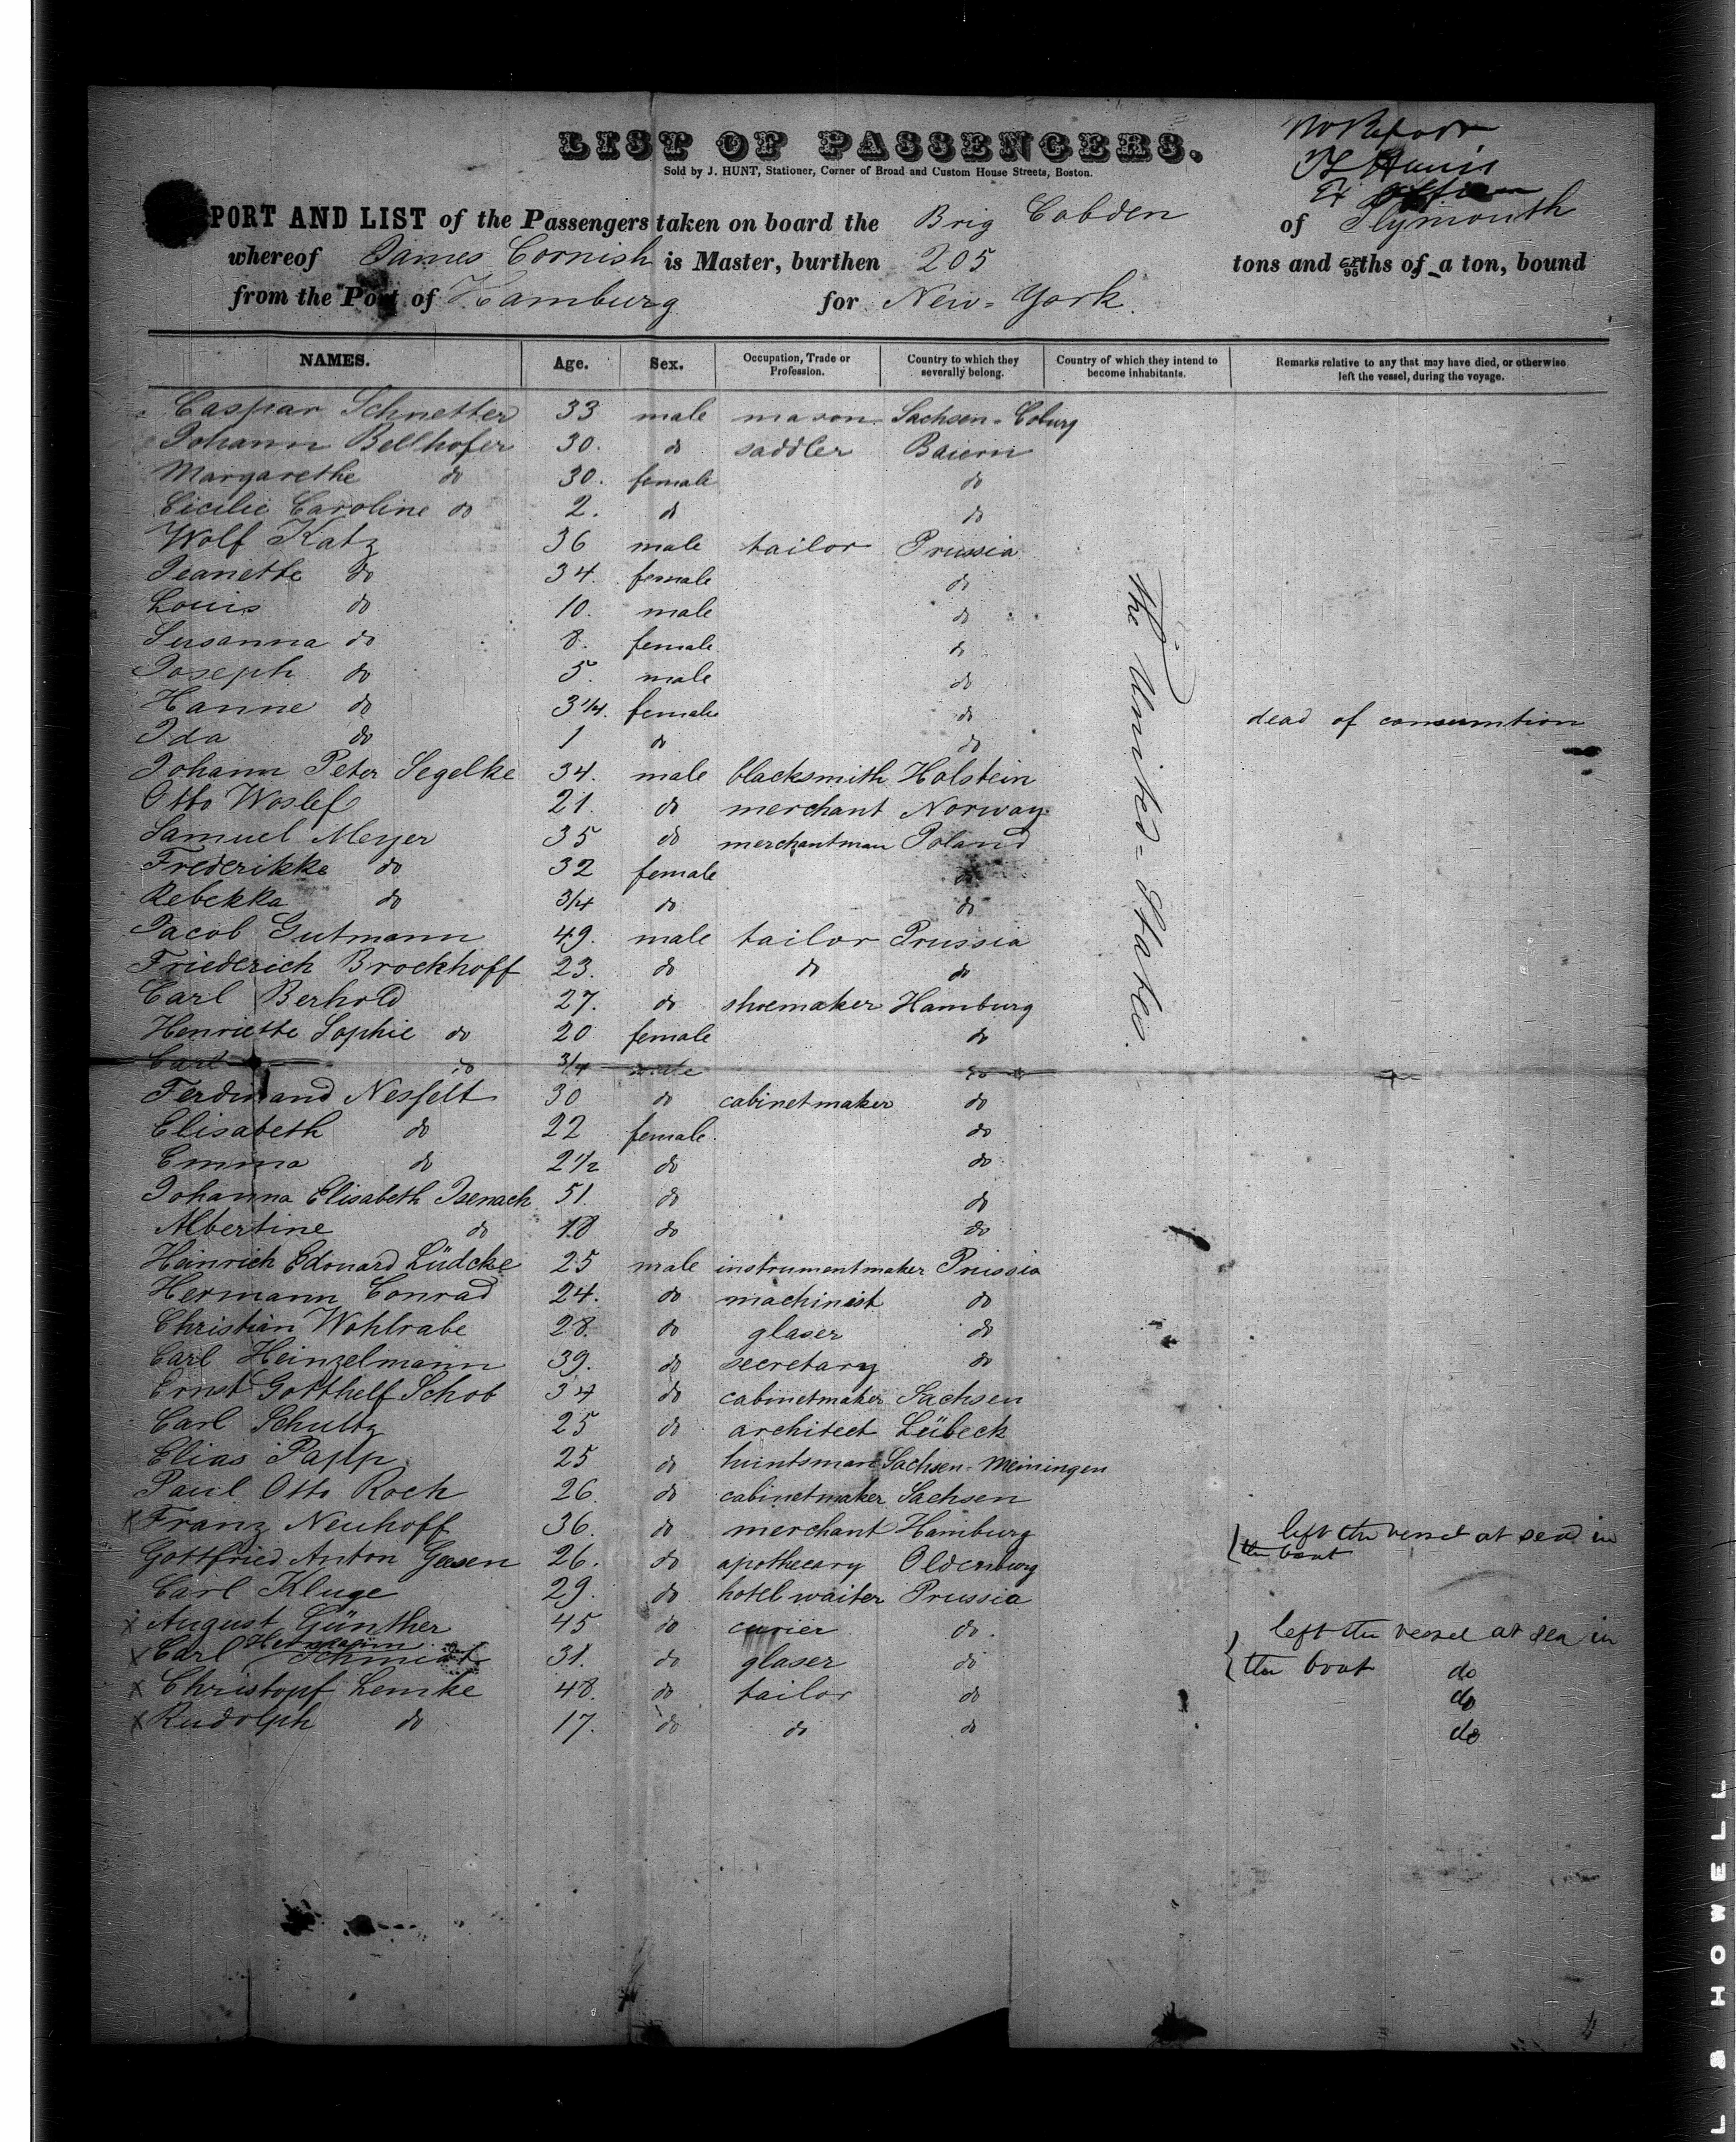 LIST OF PASSENGERS.
Sold by J. HUNT, Stationer, Corner of Broad and Custom House Streets, Boston.
PORT AND LIST of the Passengers taken on board the Brig Cobden of Plymouth
whereof James Cornish is Master, burthen 205 tons and 95ths of a ton, bound
from the Port of Hamburg for New-York.
NAMES. Age. Sex. Occupation, Trade or Profession. Country to which they severally belong. Country of which they intend to become inhabitants. Remarks relative to any that may have died, or otherwise left the vessel, during the voyage.
Caspar Schnetter 33 male mason Sachsen-Coburg
Johann Bellhofer 30. do saddler Baiern
Margarethe do 30. female do
Cicilie Caroline do 2. do do
Wolf Katz 36 male tailor Prussia
Jeanette do 34. female do
Louis do 10. male do
Susanna do 8. female do
Joseph do 5. male do
Hanne do 3 1/4. female do dead of consumtion
Ida do 1 do do
Johann Peter Segelke 34. male blacksmith Holstein
Otto Woslef 21. do merchant Norway
Samuel Meyer 35 do merchantman Poland
Frederikke do 32 female do
Rebekka do 3/4 do do
Jacob Gutmann 49. male tailor Prussia
Friederich Brockhoff 23. do do do
Carl Berhold 27. do shoemaker Hamburg
Henriette Sophie do 20 female do
Carl do 3/4 male do
Ferdinand Nesfelt 30 do cabinetmaker do
Elisabeth do 22 female. do
Emma do 2 1/2 do do
Johanna Elisabeth Isenach 51. do do
Albertine do 18 do do
Heinrich Edouard Lüdcke 25 male instrumentmaker Prussia
Hermann Conrad 24. do machinist do
Christian Wohlrabe 28. do glaser do
Carl Heinzelmann 39. do secretary do
Ernst Gotthelf Schob 34 do cabinetmaker Sachsen
Carl Schultz 25 do architect Lübeck
Elias Papp 25 do huntsman Sachsen-Meiningen
Paul Otto Roch 26. do cabinetmaker Sachsen
x Franz Neuhoff 36. do merchant Hamburg left the vessel at sea in the boat
Gottfried Anton Geesen 26. do apothecary Oldenburg
Carl Kluge 29. do hotel waiter Prussia
x August Günther 45 do currier do. left the vessel at sea in
x Carl Hermann Schmidt 31. do glaser do the boat do
x Christopf Lemke 48. do tailor do do
x Rudolph do 17. do do do do
the United-States.
L S HOWELL